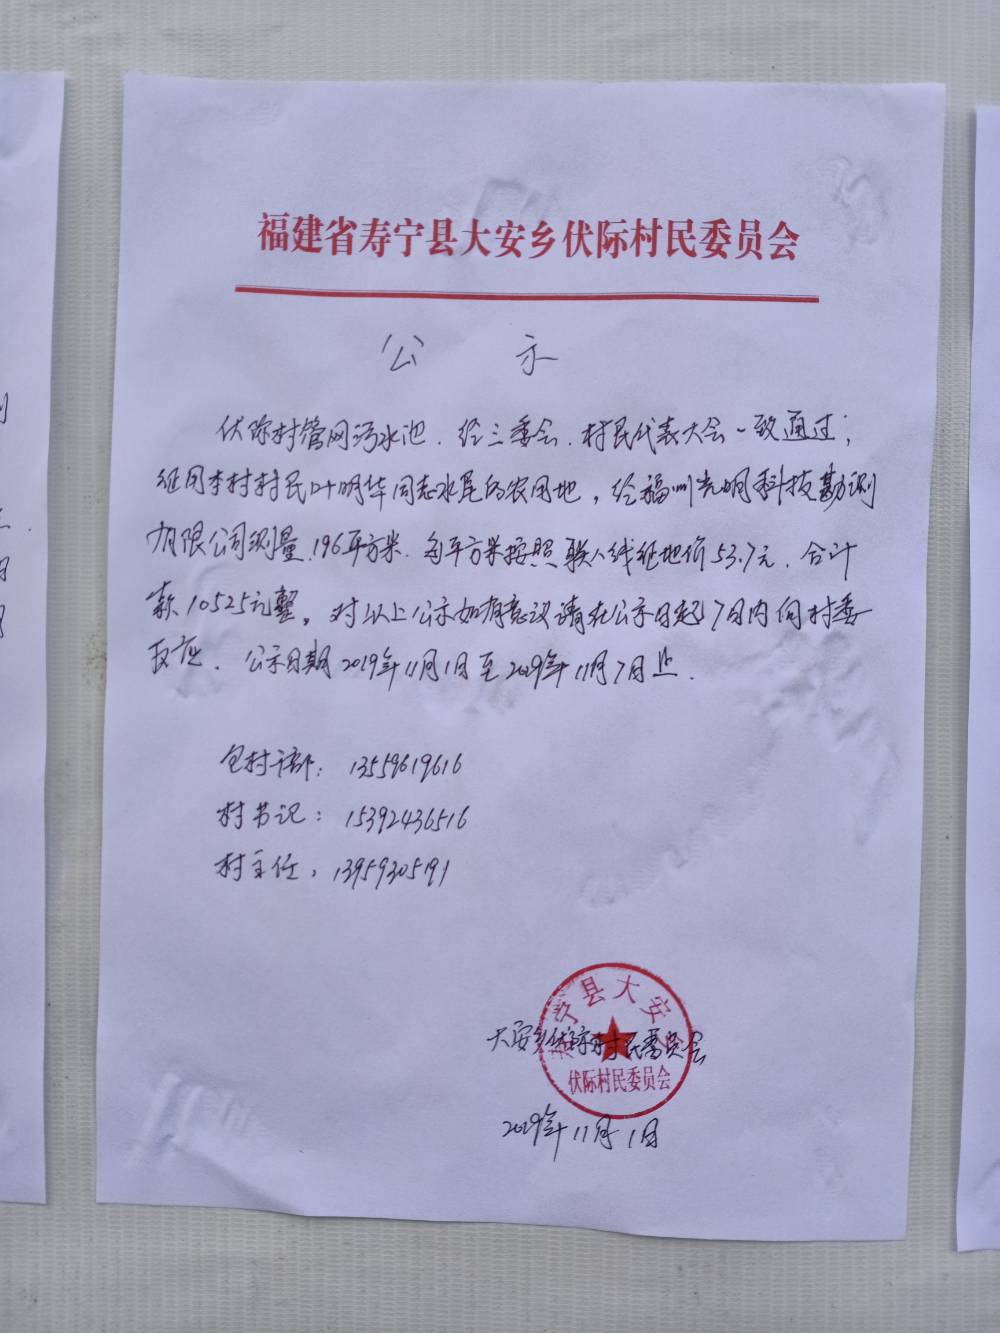 福建省寿宁县大安乡伏际村民委员会
公 示
伏际村管网污水池.经三委会.村民代表大会一致通过;
征用本村村民叶明华同志水尾的农用地,经福州克明科技勘测
有限公司测量196平方米.每平方米按照联八线征地价53.7元.合计
款10525元整。对以上公示如有意议请在公示日起7日内向村委
反应.公示日期2019年11月1日至2019年11月7日止.
包村干部:13559619616
村书记:15392436516
村主任:13959305191
寿宁县大安乡
伏际村民委员会
大安乡伏际村民委员会
2019年11月1日